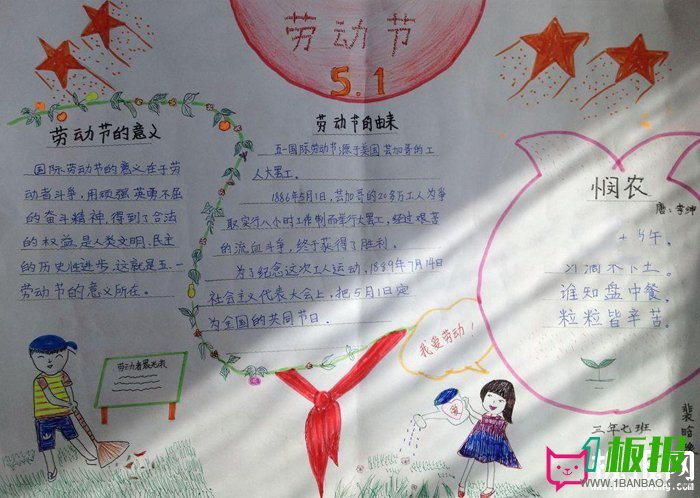 劳动节
5.1
劳动节的意义
国际劳动节的意义在于劳
动者斗争,用顽强英勇不屈
的奋斗精神,得到了合法
的权益,是人类文明、民主
的历史性进步,这就是五一
劳动节的意义所在。
劳动节的由来
五一国际劳动节源于美国芝加哥的工
人大罢工。
1886年5月1日,芝加哥的20多万工人为争
取实行八小时工作制而举行大罢工,经过艰苦
的流血斗争,终于获得了胜利。
为了纪念这次工人运动,1889年7月14日
社会主义代表大会上,把5月1日定
为全国的共同节日。
悯农
唐:李绅
午,
汗滴禾下土。
谁知盘中餐,
粒粒皆辛苦。
劳动者最光荣
我爱劳动!
爱
三年七班
裴晗
板报网
WWW.1BANBAO.COM